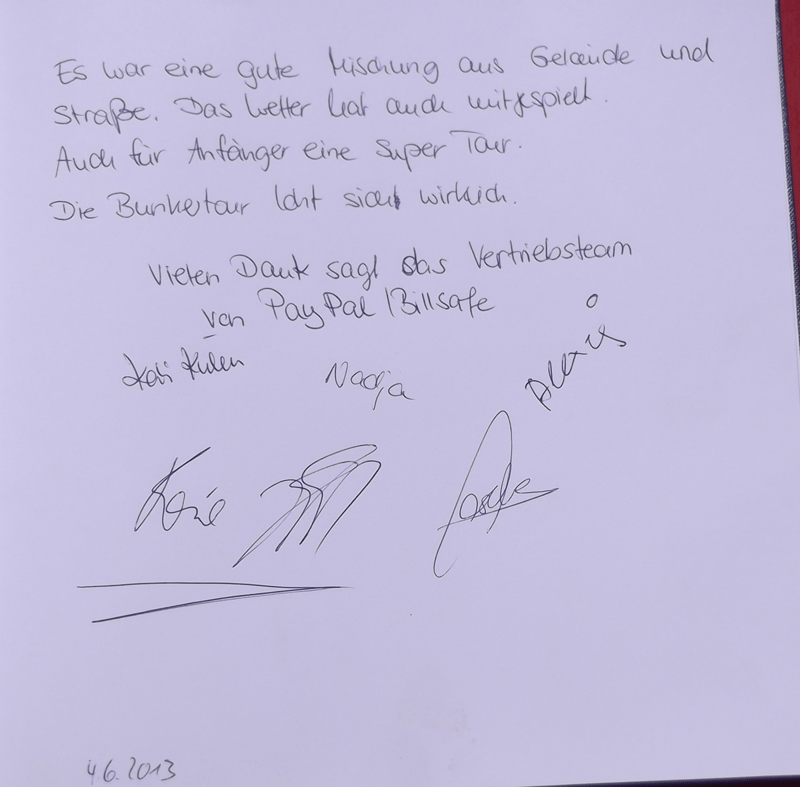 Es war eine gute Mischung aus Gelände und
Straße. Das Wetter hat auch mitgespielt.
Auch für Anfänger eine Super Tour.
Die Bunkertour loht sich wirklich.
Vielen Dank sagt das Vertriebsteam
von PayPal/Billsafe
Nadja
Alexis
4.6.2013